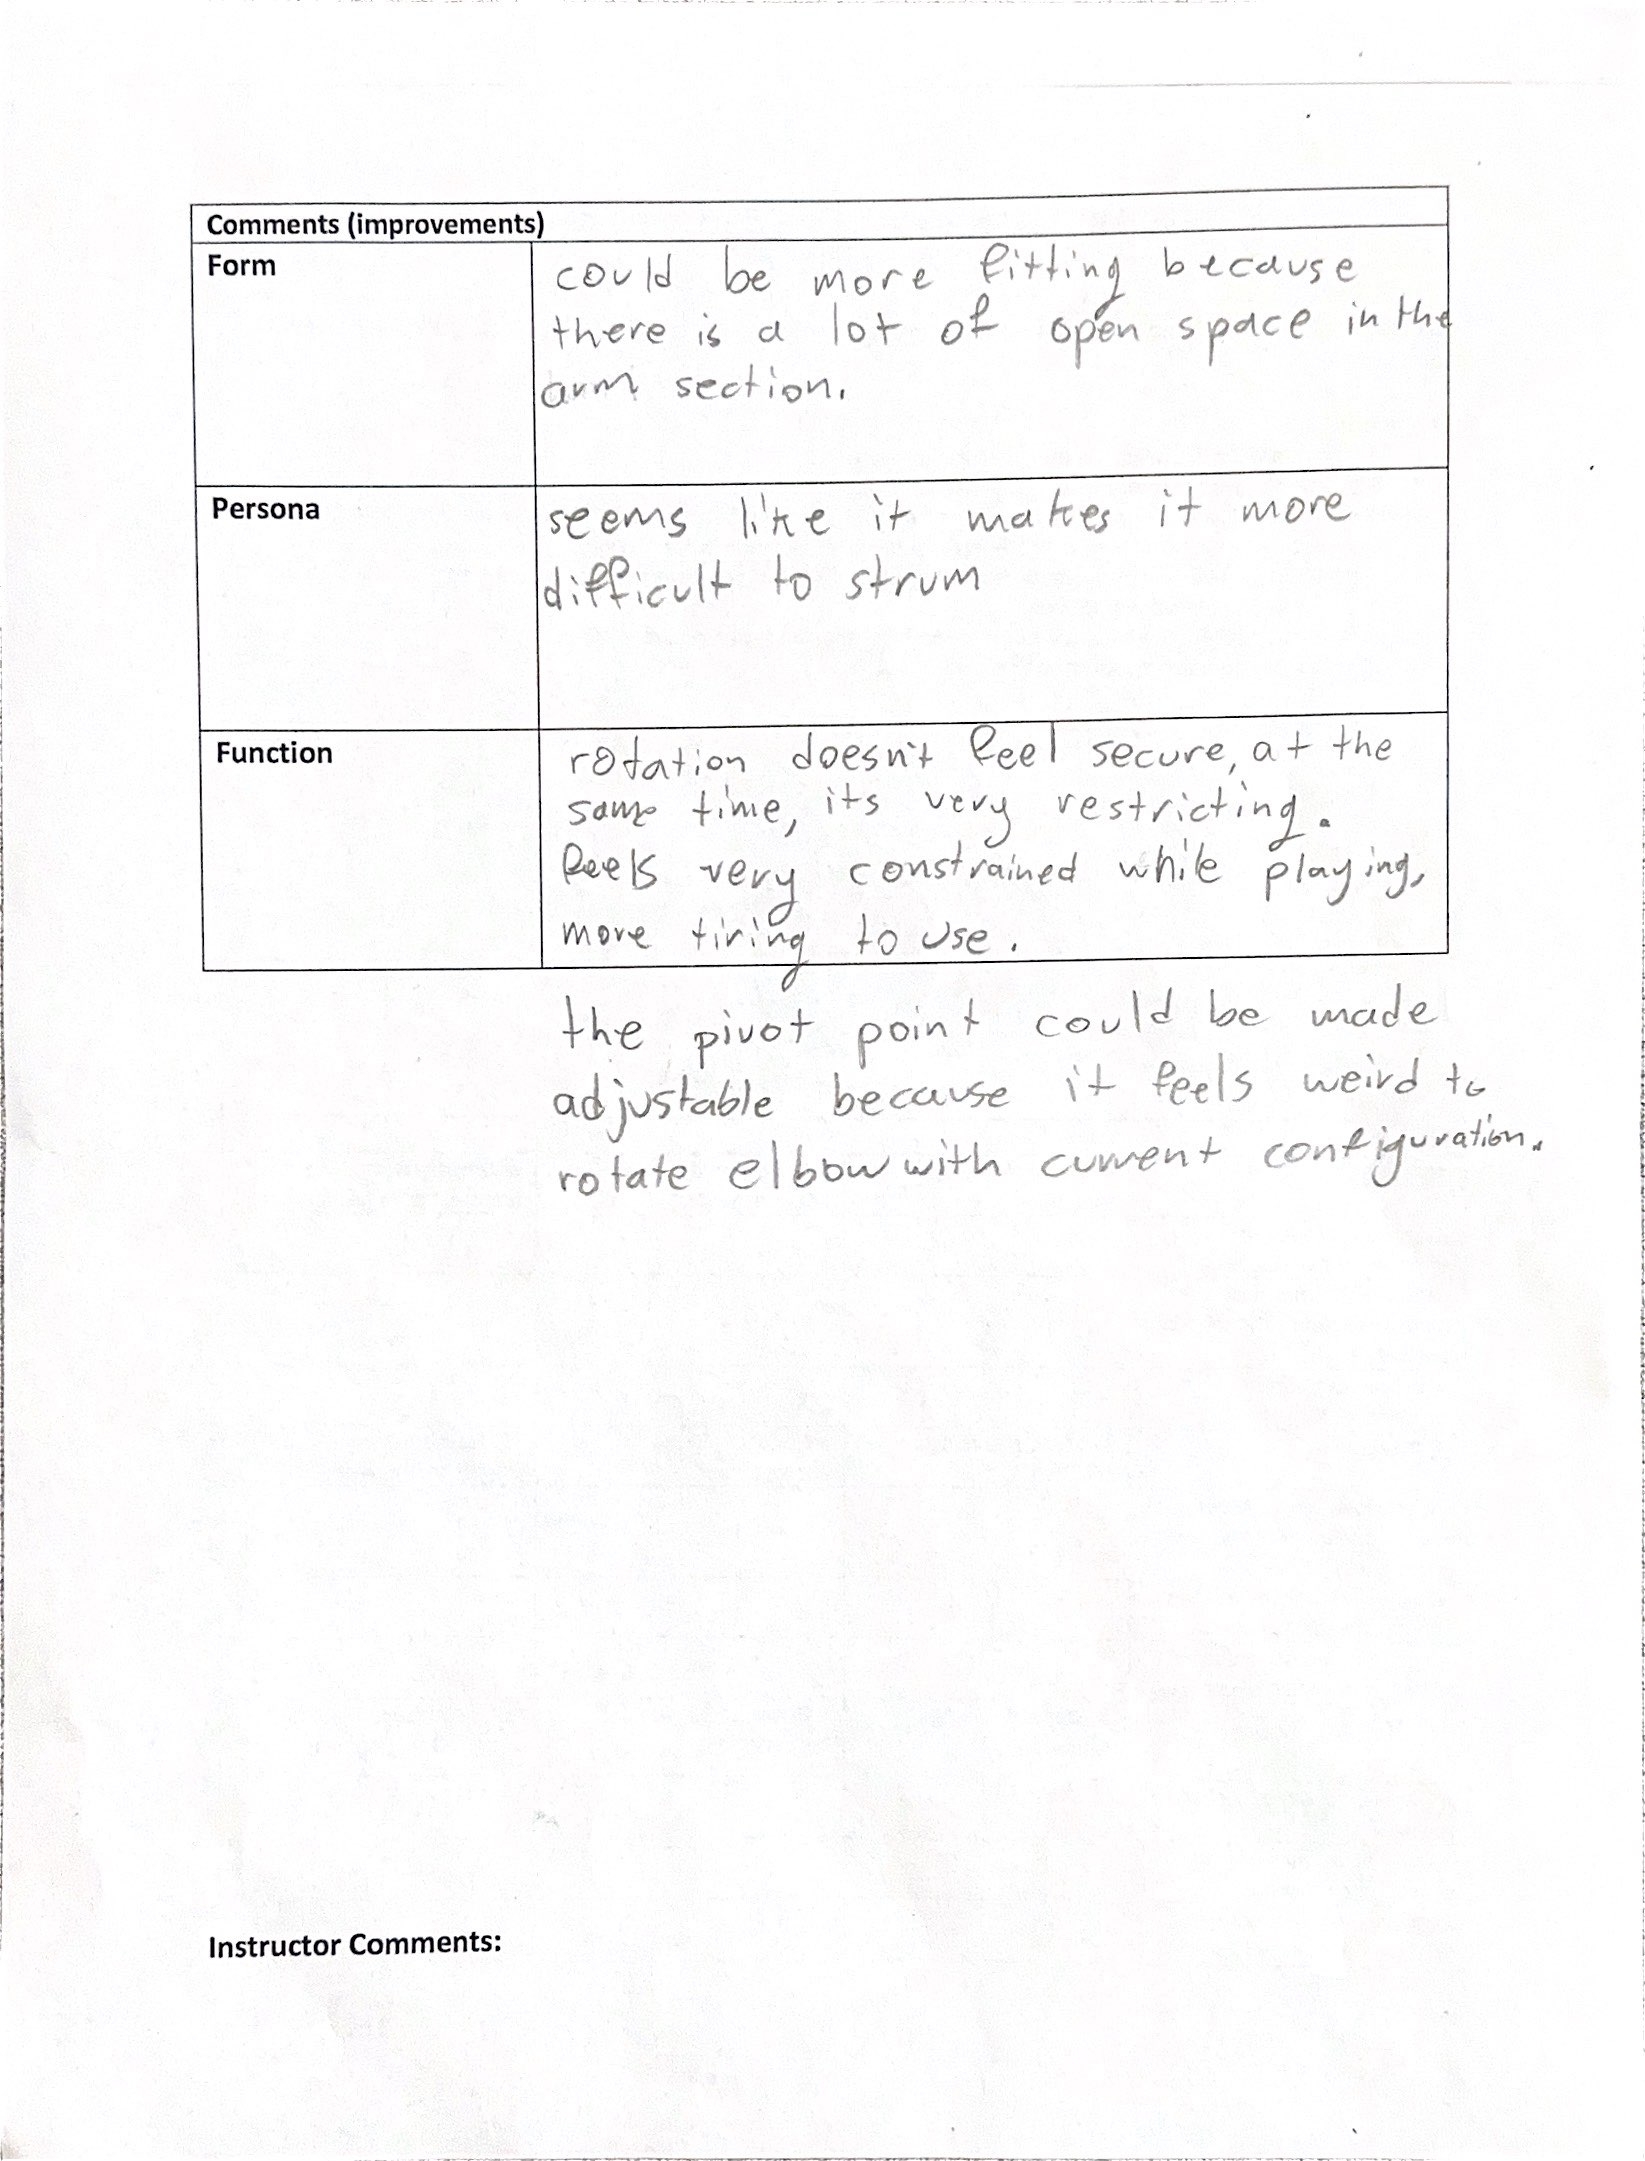 Comments (improvements)
Form
could be more fitting because
there is a lot of open space in the
arm section.
Persona
seems like it makes it more
difficult to strum
Function
rotation doesn't feel secure, at the
same time, its very restricting.
feels very constrained while playing,
more tiring to use.
the pivot point could be made
adjustable because it feels weird to
rotate elbow with current configuration.
Instructor Comments: